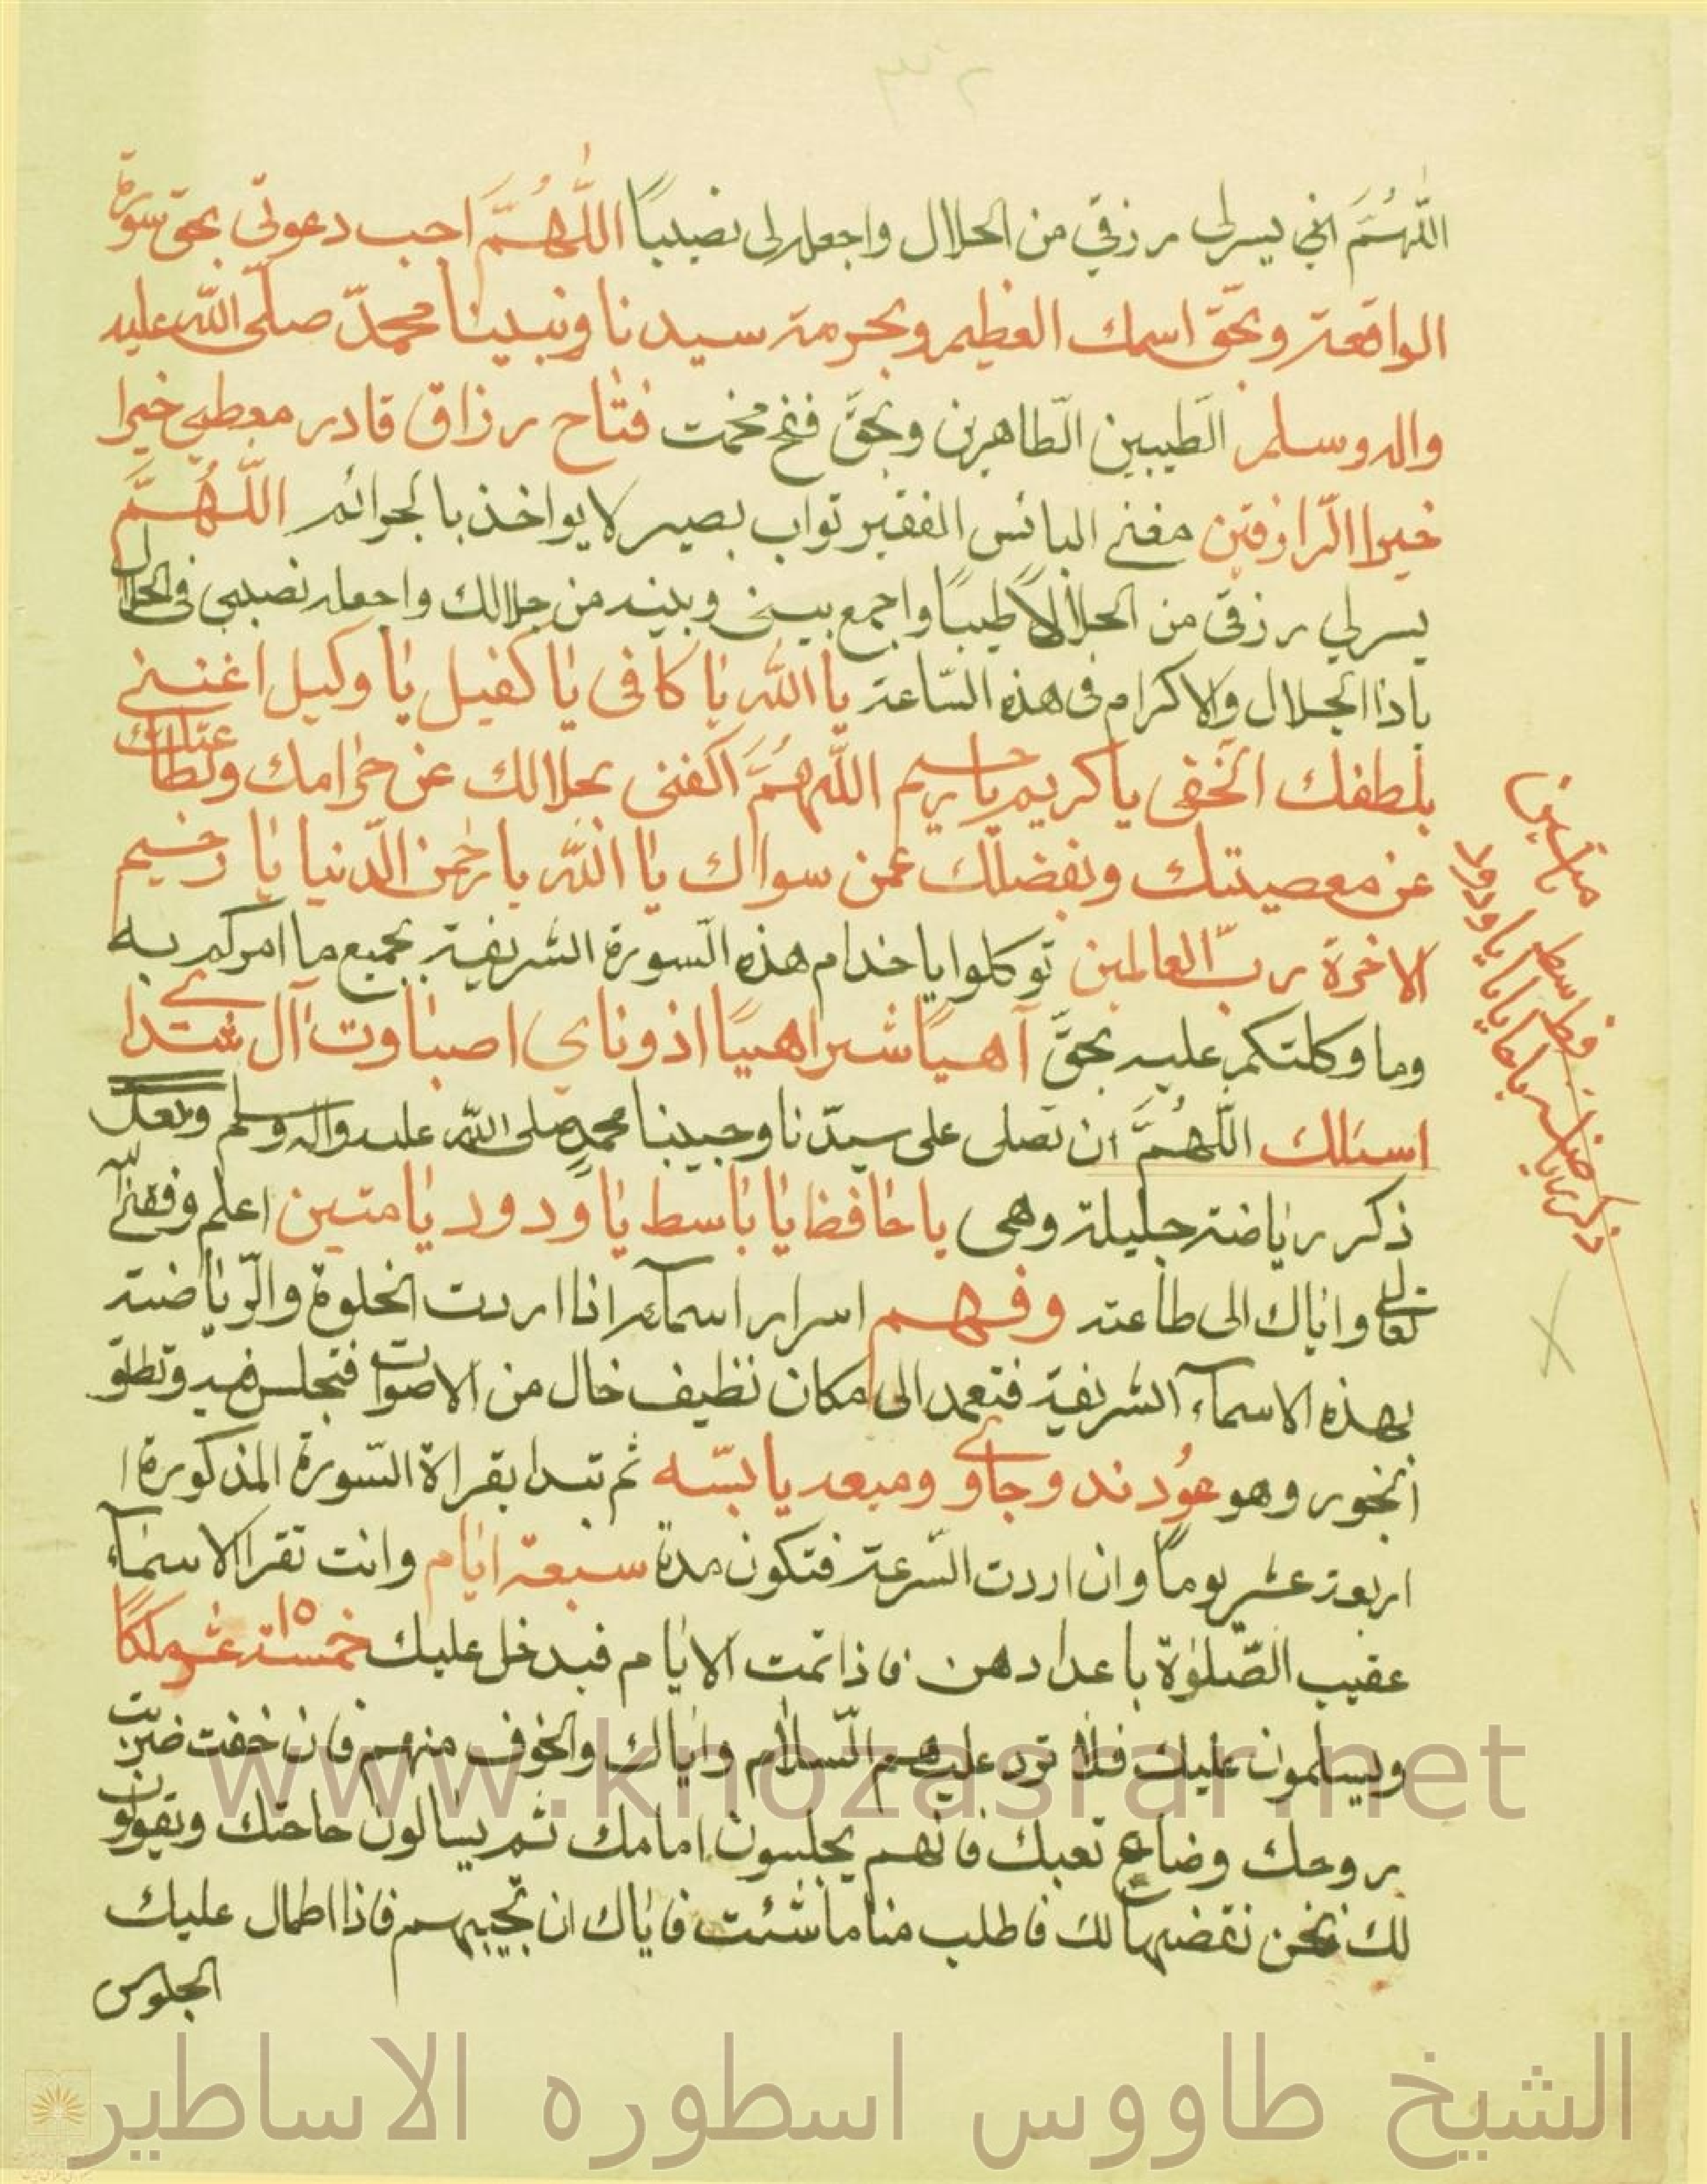 اللّٰهُمَّ اني يسرلي رزقي من الحلال واجعله لي نصيبًا اللّٰهُمَّ اجب دعوتي بحق سورة
الواقعة وبحق اسمك العظيم وبحرمة سيدنا ونبينا محمدّ صلّى اللّه عليه
واله وسلم الطيبين الطاهرين وبحقّ فتاح رزاق قادر معطي خيرا
خيرا الرازقين مغني البائس الفقير تواب بصير لا يواخذ بالجرائم اللّهُمَّ
يسرلي رزقي من الحلالاً طيبًا واجمع بيني وبينه من حلالك واجعله نصيبي في الحلال
ياذا الجلال والاكرام في هذه السّاعة يا الله يا كافي يا كفيل يا وكيل اغنني
بلطفك الخفي يا كريم يا رحيم اللّهُمَّ اكفني بحلالك عن حرامك وبطاعتك
عن معصيتك وبفضلك عمن سوااك يا اللّه يا رحمن الدنيا يا رحيم
الاخرة ربّ العالمين توكلوا يا خدام هذه السورة الشريفة بجميع ما امركم به
وما وكلتكم عليه بحقّ آهيًا شراهيًا اذوناي اصباوت آل شدای
اسئلك اللّهُمَّ ان تصلى على سيّدنا وحبيبنا محمدٍ صلى اللّه عليه واله وسلم
ذكر رياضة جليلة وهي يا حافظ يا باسط يا ودود يا متين اعلم وفقني اللّه
تعالى واياك الى طاعته وفهم اسرار اسمآئه اذا اردت الخلوة والرّياضة
بهذه الاسمآء الشريفة فتعمد الى مكان نظيف خال من الاصوات فتجلس فيه وتطلق
البخور وهو عُود ند وجاوي وميعه يابسّه ثم تبدا بقراة السّورة المذكورة
اربعة عشر يومًا وان اردت السّرعة فتكون مدة سبعة ايام وانت تقرا الاسمآء
عقيب الصّلوٰة باعدادهن فاذا تمت الايام فيدخل عليك خمسة عشر ملكًا ١٥
ويسلمون عليك فلا ترد عليهم السّلام واياك والخوف منهم فان خفت ضربت
بروحك وضاع تعبك فانهم يجلسون امامك ثم يسالون حاجتك ويقولون
لك نحن نقضيها لك فاطلب منا ما شئت فاياك ان تجيبهم فاذا اطال عليك
الجلوس
ذكر رياضة يا حافظ يا باسط يا ودود يا متين
www.khozasrar.net
الشيخ طاووس اسطوره الاساطير